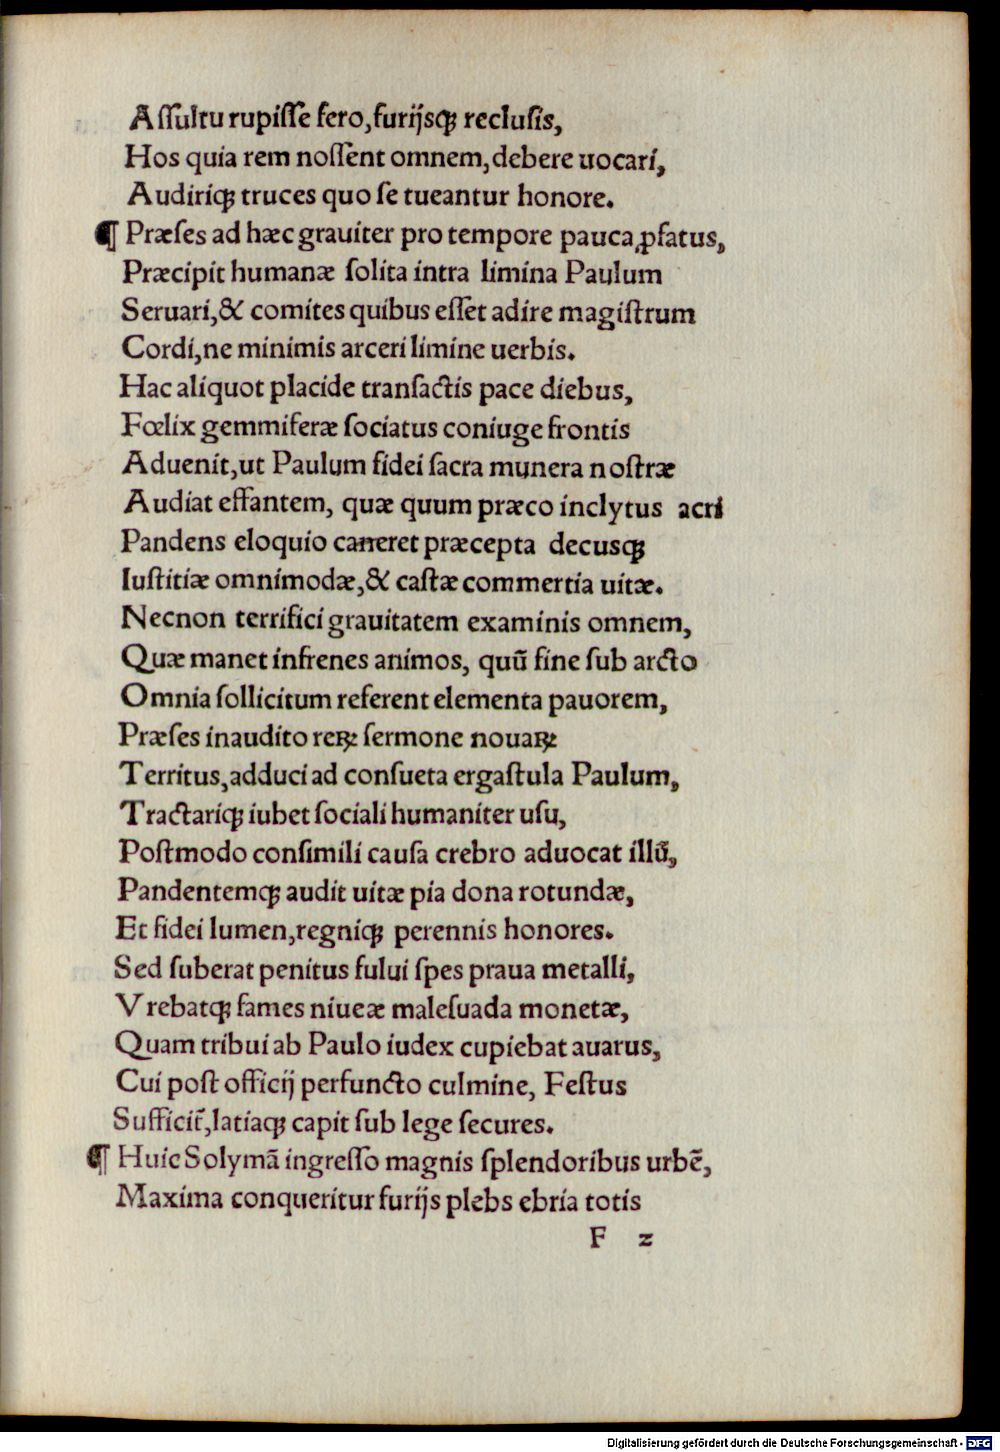 Aſſultu rupiſſe fero,furijsꝗ recluſis,
Hos quia rem noſſent omnem,debere uocari,
Audiriꝗ truces quo ſe tueantur honore.
¶ Præſes ad hæc grauiter pro tempore pauca ꝓfatus,
Præcipit humanæ ſolita intra limina Paulum
Seruari,& comites quibus eſſet adire magiſtrum
Cordi,ne minimis arceri limine uerbis.
Hac aliquot placide tranſactis pace diebus,
Fœlix gemmiferæ ſociatus coniuge frontis
Aduenit,ut Paulum fidei ſacra munera noſtræ
Audiat effantem, quæ quum præco inclytus acri
Pandens eloquio caneret præcepta decusꝗ
Iuſtitiæ omnimodæ,& caſtæ commertia uitæ.
Necnon terrifici grauitatem examinis omnem,
Quæ manet infrenes animos, quū fine ſub arcto
Omnia ſollicitum referent elementa pauorem,
Præſes inaudito reꝝ ſermone nouaꝝ
Territus,adduci ad conſueta ergaſtula Paulum,
Tractariꝗ iubet ſociali humaniter uſu,
Poſtmodo conſimili cauſa crebro aduocat illū,
Pandentemꝗ audit uitæ pia dona rotundæ,
Et fidei lumen,regniꝗ perennis honores.
Sed ſuberat penitus fului ſpes praua metalli,
Vrebatꝗ fames niueæ maleſuada monetæ,
Quam tribui ab Paulo iudex cupiebat auarus,
Cui poſt officij perfuncto culmine, Feſtus
Sufficit̃,latiaꝗ capit ſub lege ſecures.
¶ Huic Solymã ingreſſo magnis ſplendoribus urbẽ,
Maxima conqueritur furijs plebs ebria totis
F z
Digitalisierung gefördert durch die Deutsche Forschungsgemeinschaft - DFG